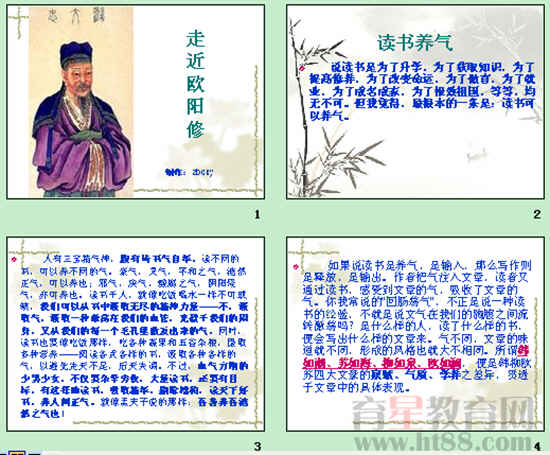 走近欧阳修
制作：
1
读书养气
说读书是为了升学，为了获取知识，为了
提高修养，为了改变命运，为了做官，为了就
业，为了成名成家，为了报效祖国，等等，均
无不可。但我觉得，最根本的一条是：读书可
以养气。
2
人有三宝精气神，腹有诗书气自华。读不同的
书，可以养不同的气。豪气，灵气，平和之气，浩然
正气，可以养也；邪气，戾气，
气，亦可养也。读书于人，就像吃饭喝水一样不可或
缺，我们可以从书中吸取无尽的精神力量——不，吸
取气，吸取一种激荡在我们的血管，充盈于我们的胸
身，又从我们的每一个毛孔里散发出来的气。同时，
读书也要像吃饭那样，吃各种蔬果和五谷杂粮，摄取
多种营养——阅读各式各样的书，吸取各种各样的
气，以避免先天不足，后天失调。不过，血气方刚的
少男少女，不仅要杂学旁收，大量读书，还要有目
标，有选择地读书，吸取精华，剔除糟粕，读天下好
书，养人间正气。就像孟夫子说的那样：吾善养吾浩
然之气也！
3
如果说读书是养气，是输入，那么写作则
是释放，是输出。作者把气注入文章，读者又
通过读书，感受到文章的气，吸收了文章的
气。你我常说的“回肠荡气”，不正是说一种读
书的经验，不就是说文气在我们的胸臆之间流
转激荡吗？是什么样的人，读了什么样的书，
便会写出什么样的文章来。气不同，文章的味
道就不同，形成的风格也就大不相同。所谓韩
如潮、苏如海、柳如泉、欧如澜，便是韩柳欧
苏四大文豪的禀赋、气质、学养之差异，贯透
于文章中的具体表现。
4
育星教育网
www.ht88.com